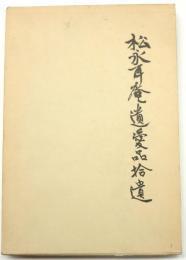 松永耳庵遺愛品拾遺